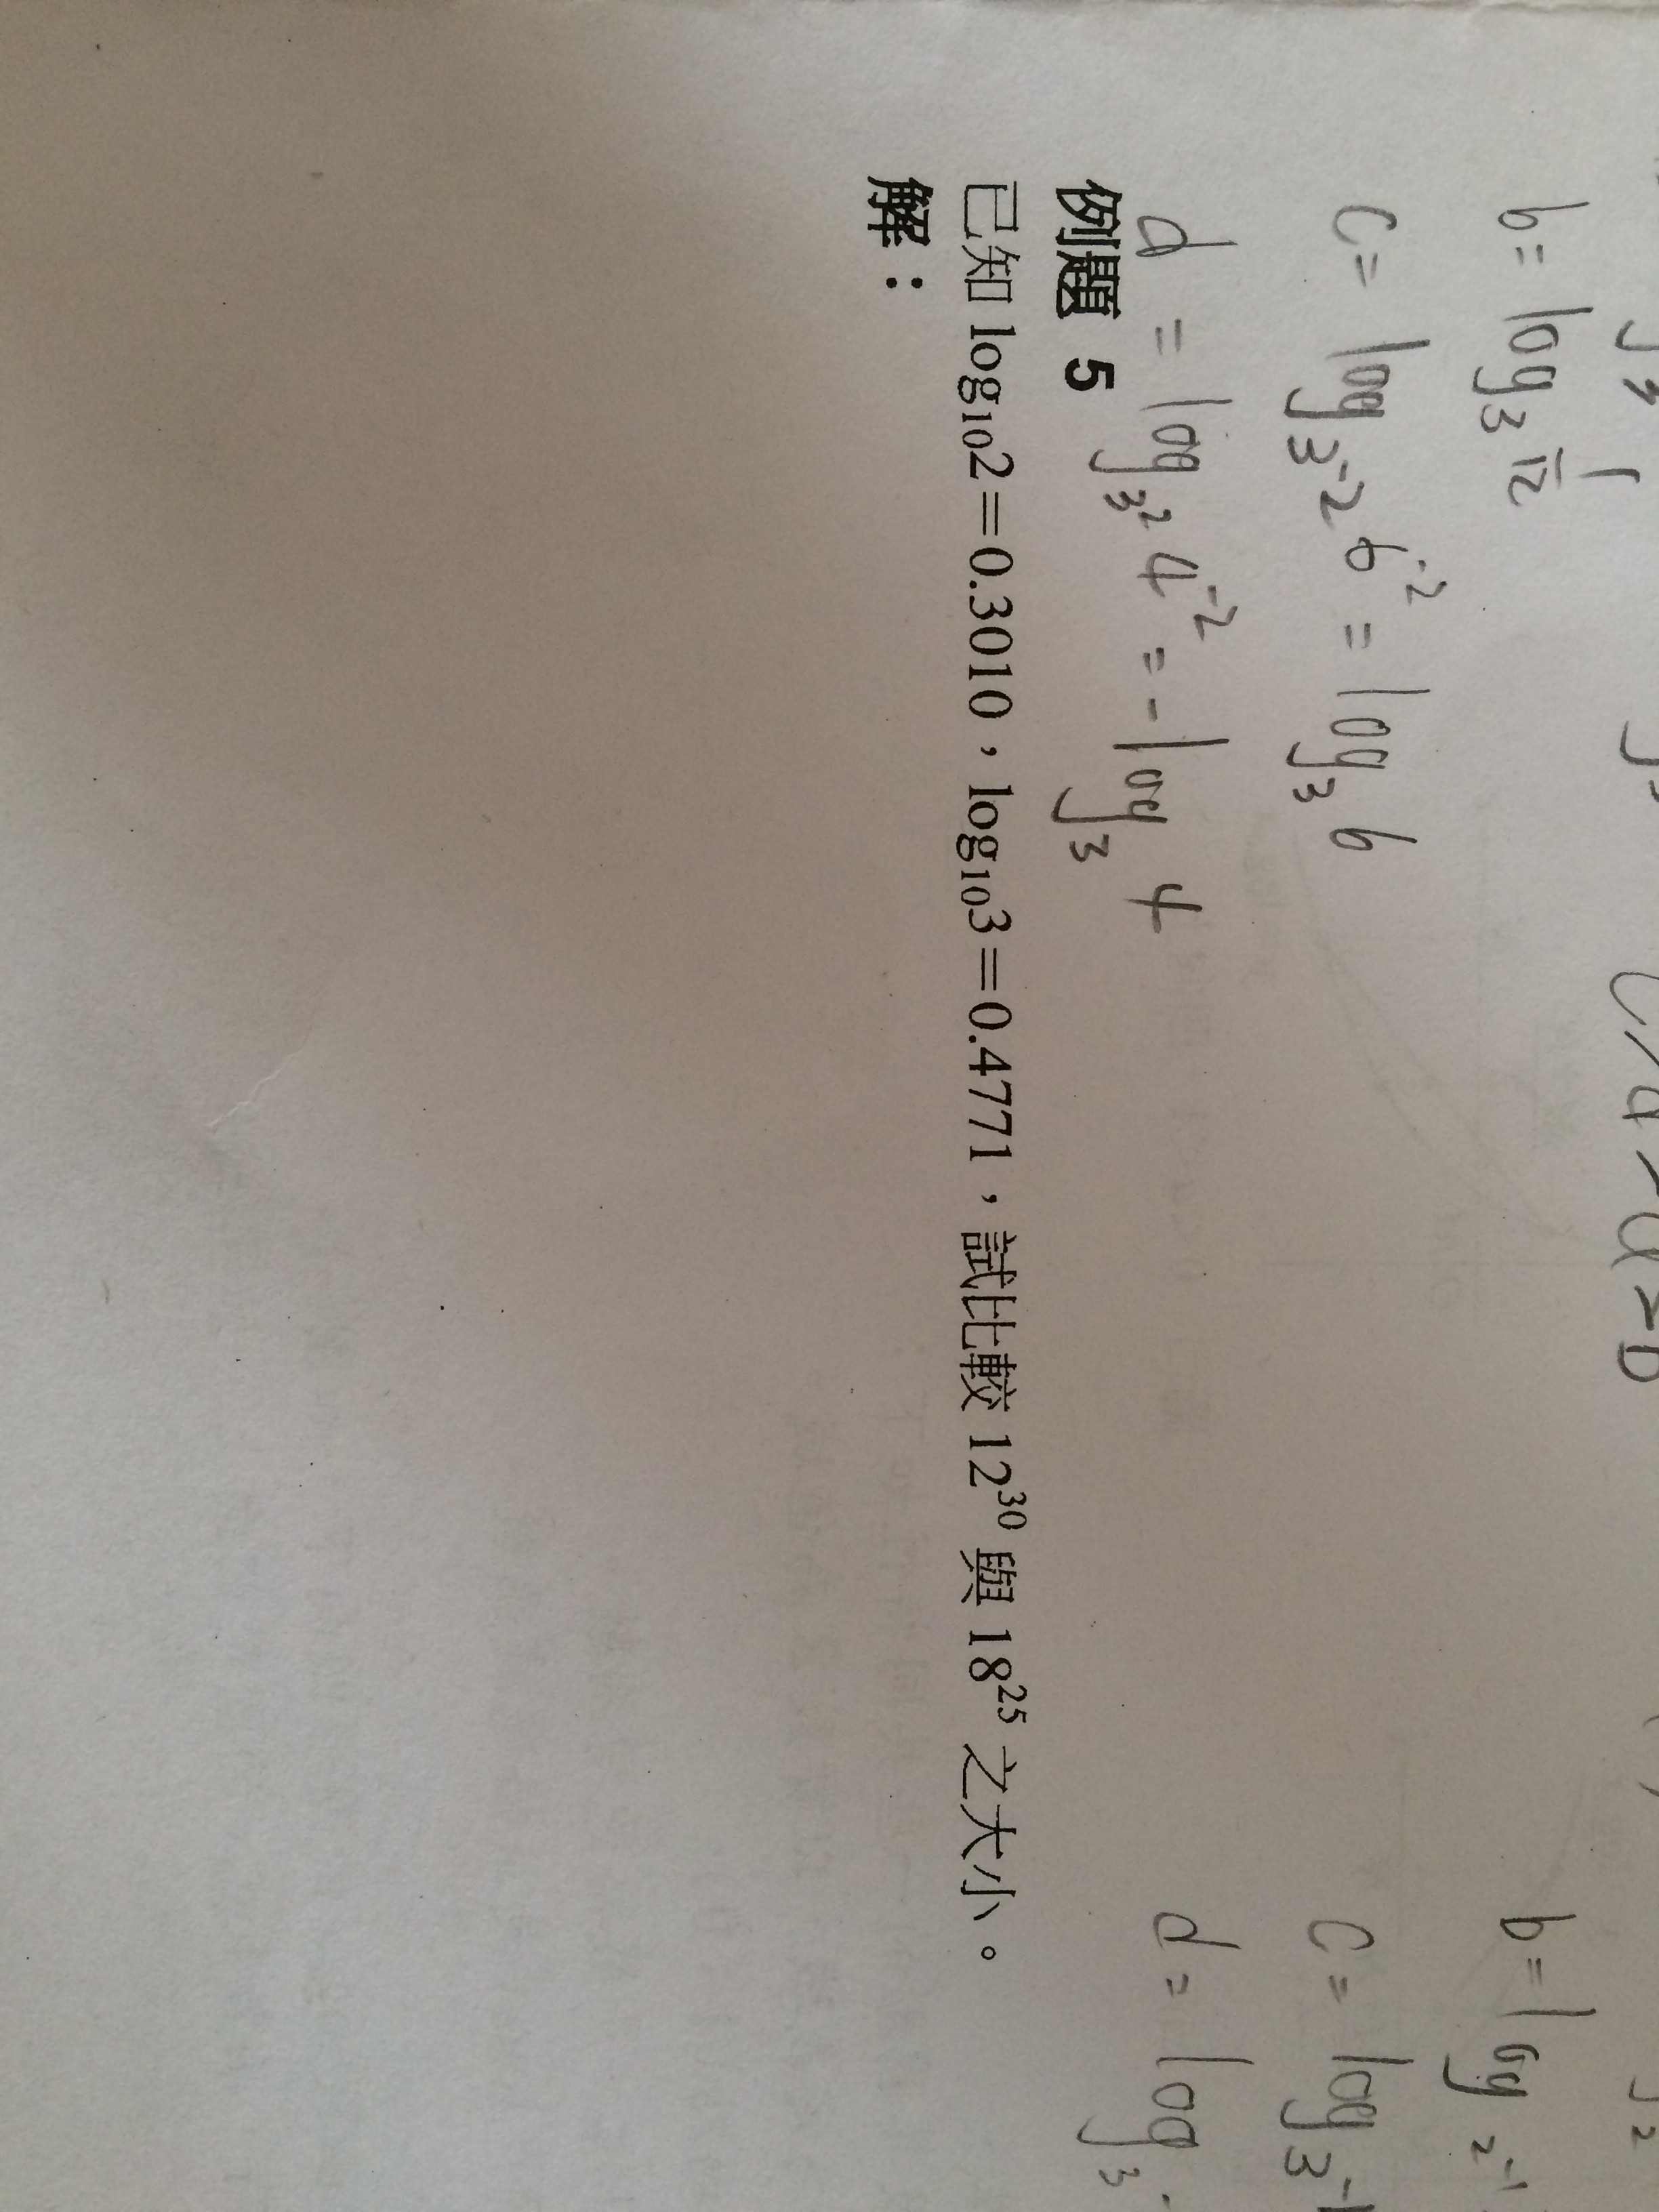 b = log₃ 12
b = log₂⁻¹
c = log₃⁻² 6⁻² = log₃ 6
c = log₃⁻¹
d = log₃² 4⁻² = -log₃ 4
d = log₃
例題 5
已知 log₁₀2=0.3010,log₁₀3=0.4771,試比較 12³⁰ 與 18²⁵ 之大小。
解: